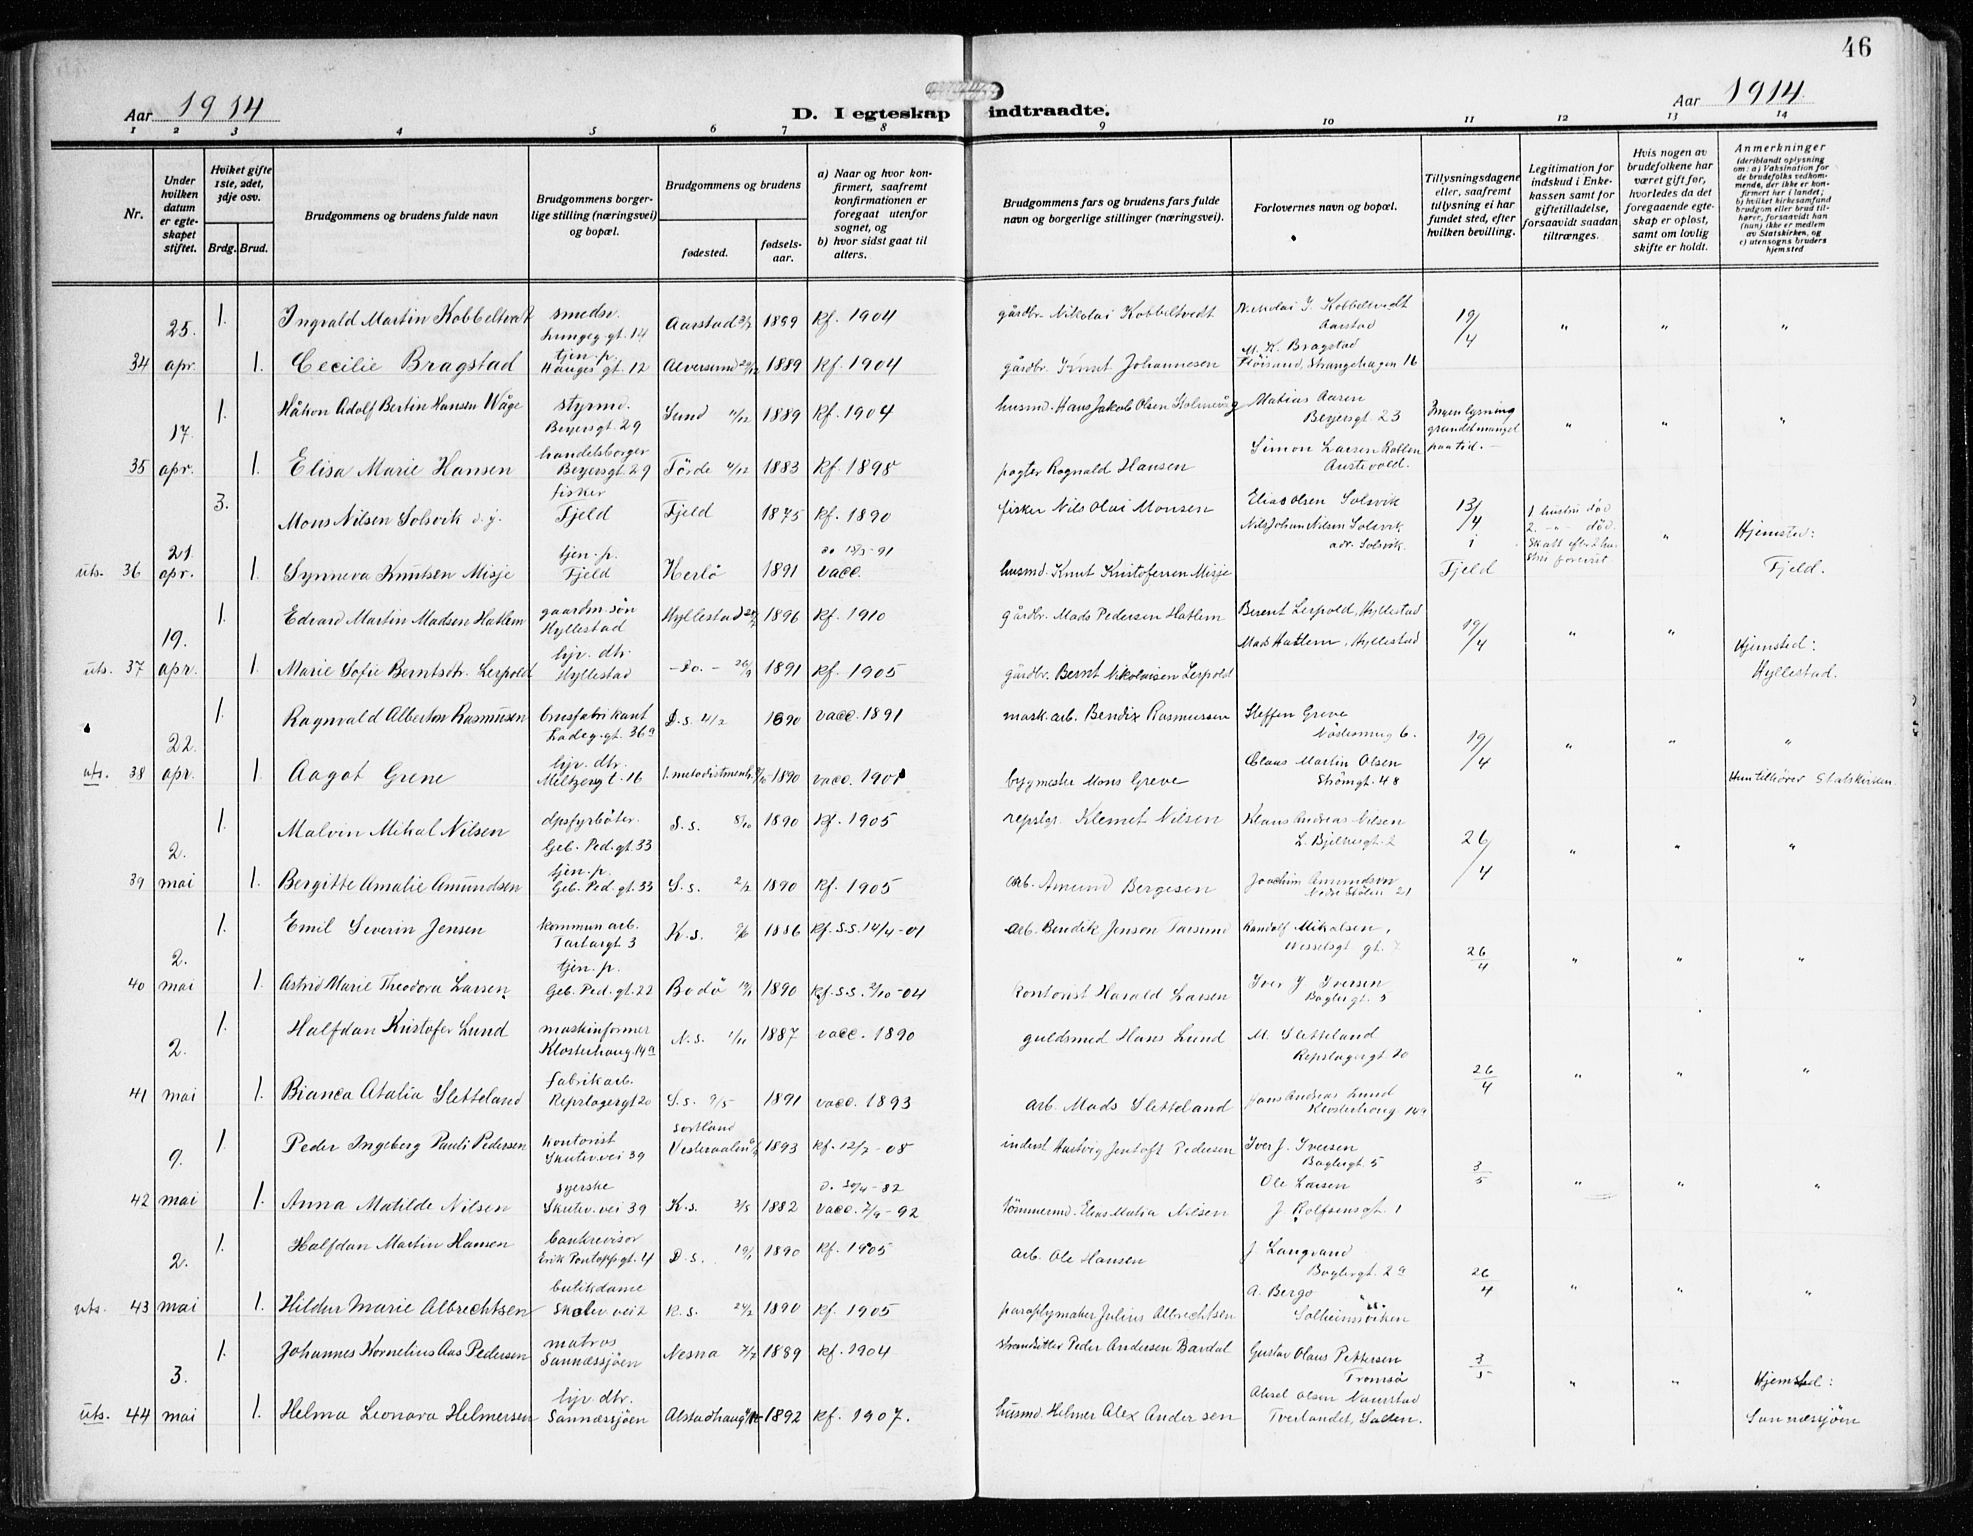 46
Aar 1914
D. I egteskap indtraadte.
Aar 1914
1 2 3 4 5 6 7 8 9 10 11 12 13 14
Nr.
Under hvilken datum er egteskapet stiftet.
Hviket gifte 1ste, 2det, 3dje osv.
Brdg. Brud.
Brudgommens og brudens fulde navn
Brudgommens borgerlige stilling (næringsvei) og bopæl.
Brudgommens og brudens
fødested.
fødselsaar.
a) Naar og hvor konfirmert, saafremt konfirmationen er foregaat utenfor sognet, og
b) hvor sidst gaat til alters.
Brudgommens fars og brudens fars fulde navn og borgerlige stillinger (næringsvei).
Forlovernes navn og bopæl.
Tillysningsdagene eller, saafremt tillysning ei har fundet sted, efter hvilken bevilling.
Legitimation for indskud i Enkekassen samt for giftetilladelse, forsaavidt saadan tiltrænges.
Hvis nogen av brudefolkene har været gift før, hvorledes da det foregaaende egteskap er opløst, samt om lovlig skifte er holdt.
Anmerkninger
(deriblandt oplysning om: a) Vaksination for de brudefolks vedkommende, der ikke er konfirmert her i landet; b) hvilket kirkesamfund brudgom eller brud tilhører, forsaavidt han (hun) ikke er medlem av Statskirken, og c) utensogns bruders hjemsted
25. 1. Ingvald Martin Kobbeltvedt smedsv. Lungeg. gt. 14 Aarstad 1889 kf. 1904 gårdbr. Nikolai Kobbeltvedt Nikolai J. Kobbeltvedt Aarstad 19/4 " " "
34 apr. 1. Cecilie Bragstad tjen. p. Hauges gt. 12 Alversund 1889 kf. 1904 gårdbr. Knut Johannesen M. K. Bragstad Fløisand, Strangehagen 16
17. 1. Håkon Adolf Bertin Hansen Wåge styrmd. Beyersgt. 29 Sund 11/12 1889 kf. 1904 husmd. Hans Jakob Olsen Matias Aasen Beyersgt 23 Ingen lysning grundet mangel paa tid. " " "
35 apr. 1. Elisa Marie Hansen handelsborger Beyersgt 29 Førde 1883 kf. 1898 pagter Ragnald Hansen Simon Larsen Austevold.
21. 3. Mons Nilsen Solsvik d. y. fisker Fjeld Fjeld 1875 kf. 1890 fisker Nils Olai Monsen Elias Olsen Solsvik Nils Johan Nilsen Solsvik adr. Solsvik. 13/4 i 1 hustru død 2. -"- død. Skift efter 2 hustru forevist. " Hjemsted:
uts. 36 apr. 1. Synneva Knutsen Misje tjen. p. Fjeld Herlø 1891 vacc. husmd. Knut Kristofersen Misje Fjeld Fjeld.
19. 1. Edvard Martin Madsen Hatlem gaardm. søn Hyllestad Hyllestad 1896 kf. 1910 gårdbr. Mads Pedersen Hatlem Berent Leepold, Hyllestad 19/4 " " Hjemsted:
uts. 37 apr. 1. Marie Sofie Berntsdtr. Leepold hjv. dtr. Hyllestad -Do.- 1891 kf. 1905 gårdbr. Bernt Nikolaisen Leepold Mads Hatlem, Hyllestad Hyllestad.
22. 1. Ragnvald Alberton Rasmussen brusfabrikant Ladeg. gt. 36a D.s. 1890 vacc. 1891 mask. arb. Bendix Rasmussen Steffen Greve Nøstermug 6. 19/4 " " "
uts. 38 apr. 1. Aagot Grene hjv. dtr. Meltzers gt. 16 1890 vacc. 1901 bygmester Mons Greve Claus Martin Olsen Strømgt. 48 Hun tilhører Statskirken
2. 1. Malvin Mikal Nilsen dpsfyrbøter. Geb. Ped. gt. 33 S.s. 8/10 1890 kf. 1905 repslgr. Klemet Nilsen Klaus Andreas Nilsen 26/4 " " "
39 mai 1. Bergitte Amalie Amundsen tjen. p. Geb. Ped. gt. 33 S.s. 2/2 1890 kf. 1905 arb. Amund Bergesen Joachim Amundsen Nedre Stølen 21
2. 1. Emil Severin Jensen kommun arb. Tartargt 3 K.s. 1886 kf. S.S. 14/4-01 arb. Bendik Jensen Randolf Mikalsen, Wesselsgt gt. 7 26/4 " " "
40 mai 1. Astrid Marie Theodora Larsen tjen. p. Geb. Ped. gt. 22 Bodø 1890 kf. S.S. 2/10-04 kontorist Harald Larsen Iver J Iversen Baglergt. 5
2. 1. Halfdan Kristofer Lund maskinformer Klosterhaug. 14a N.s. 1/11 1887 vacc. 1890 guldsmed Hans Lund M. Sletteland Repslagergt. 20 26/4 " " "
41 mai 1. Bianca Atalia Sletteland fabrikarb. Repslagergt 20 S.s. 9/5 1891 vacc. 1893 arb. Mads Sletteland Hans Andreas Lund Klosterhaug 14a
9. 1. Peder Ingeberg Pauli Pedersen kontorist Skutev. vei 39 Sortland Vesteraalen 1893 kf. 12/7-08 inderst Hartvig Jentoft Pedersen Iver J. Iversen Baglergt. 5 3/5 " " "
42 mai 1. Anna Matilde Nilsen syerske Skutev. vei 39 K.s. 3/5 1882 d. 30/4-82 vacc. 7/9-92 tømmermd. Elias Matia Nilsen Ole Larsen J. Rolfsensgt. 1
2. 1. Halfdan Martin Hansen bankrevisor Erik Pontopp gt. 4 D.s. 19/1 1890 kf. 1905 arb. Ole Hansen J. Langsand Baglergt. 2a 26/4 " " "
uts. 43 mai 1. Hildur Marie Albrechtsen butikdame Skolev. vei 2 K.s. 24/2 1890 kf. 1905 paraplymaker Julius Albrechtsen A. Bergo Solheimsviken
3. 1. Johannes Kornelius Aas Pedersen matros Sannæssjøen Nesna 7/7 1889 kf. 1904 strandsitter Peder Andersen Bardal Gustav Olaus Pettersen Tromsø 3/5 " " Hjemsted:
uts. 44 mai 1. Helma Leonora Helmersen hjv. dtr. Sannæssjøen Alstadhaug 1892 kf. 1907. husmd Helmer Alex Andersen Aksel Olsen Naurstad Tverlandet, Salten. Sannæssjøen